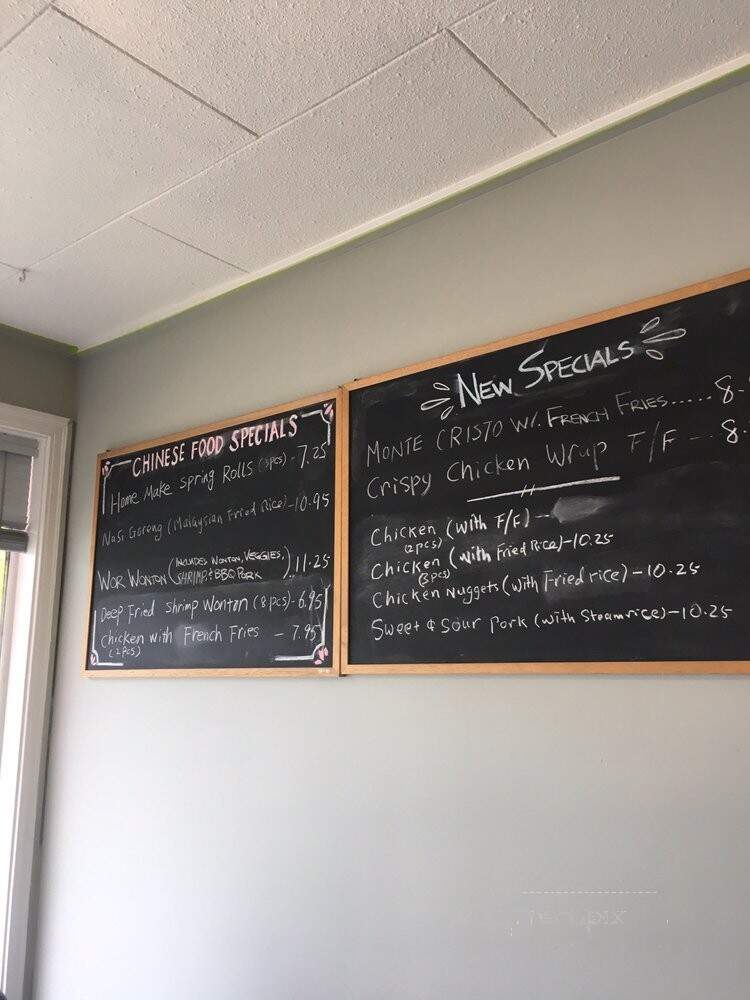 CHINESE FOOD SPECIALS
Home Make Spring Rolls (3pcs) - 7.25
Nasi Goreng (Malaysian Fried Rice) - 10.95
WOR WONTON (INCLUDES WONTON, VEGGIES,
SHRIMP & BBQ PORK) .. 11.25
Deep Fried Shrimp Wonton (8 pcs) - 6.95
Chicken with French Fries - 7.95
(2 pcs)
NEW SPECIALS
MONTE CRISTO W/. FRENCH FRIES ..... 8.
Crispy Chicken Wrap F/F -.. 8.
Chicken (with F/F) -
(2pcs)
Chicken (with Fried Rice) - 10.25
Chicken Nuggets (with Fried rice) - 10.25
Sweet & Sour Pork (with Steam rice) - 10.25